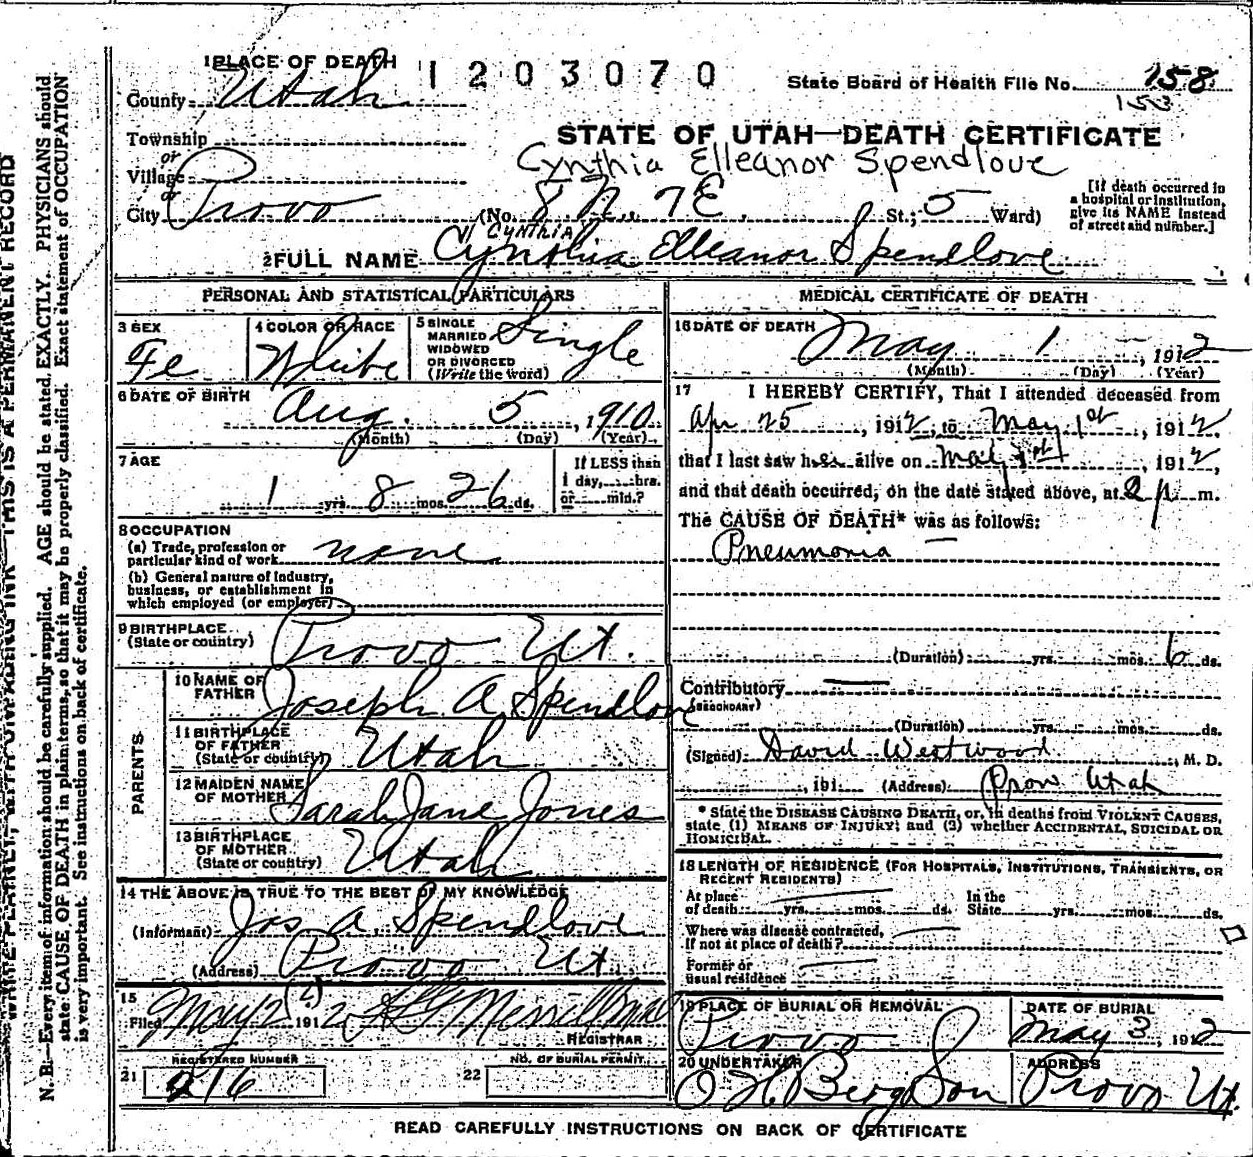 1 PLACE OF DEATH 1203070
State Board of Health File No. 158
153
County Utah
STATE OF UTAH—DEATH CERTIFICATE
Cynthia Elleanor Spendlove
Township
or
Village
or
City Provo (No. 8 N. 7 E. St.; 5 Ward)
[If death occurred in
a hospital or institution,
give its NAME instead
of street and number.]
CYNTHIA
2 FULL NAME Cynthia Elleanor Spendlove
PERSONAL AND STATISTICAL PARTICULARS
3 SEX
Fe
4 COLOR OR RACE
White
5 SINGLE
MARRIED
WIDOWED
OR DIVORCED
(Write the word)
Single
6 DATE OF BIRTH
Aug. 5, 1910
(Month) (Day) (Year)
7 AGE
1 yrs. 8 mos. 26 ds.
If LESS than
1 day, hrs.
or min.?
8 OCCUPATION
(a) Trade, profession or
particular kind of work none
(b) General nature of Industry,
business, or establishment in
which employed (or employer)
9 BIRTHPLACE
(State or country) Provo Ut.
PARENTS
10 NAME OF
FATHER Joseph A Spendlove
11 BIRTHPLACE
OF FATHER
(State or country) Utah
12 MAIDEN NAME
OF MOTHER Sarah Jane Jones
13 BIRTHPLACE
OF MOTHER
(State or country) Utah
14 THE ABOVE IS TRUE TO THE BEST OF MY KNOWLEDGE
(Informant) Jos A. Spendlove
(Address) Provo Ut.
15
Filed May 2 1912 Merrill
REGISTRAR
REGISTERED NUMBER
21 216
NO. OF BURIAL PERMIT
22
MEDICAL CERTIFICATE OF DEATH
16 DATE OF DEATH
May 1, 1912
(Month) (Day) (Year)
17 I HEREBY CERTIFY, That I attended deceased from
Apr 25, 1912, to May 1st, 1912,
that I last saw her alive on May 1st, 1912,
and that death occurred, on the date stated above, at 2 p m.
The CAUSE OF DEATH* was as follows:
Pneumonia
(Duration) yrs. mos. 6 ds.
Contributory
(SECONDARY)
(Duration) yrs. mos. ds.
(Signed) David Westwood, M. D.
, 191 (Address) Provo Utah
* State the DISEASE CAUSING DEATH, or, in deaths from VIOLENT CAUSES,
state (1) MEANS OF INJURY; and (2) whether ACCIDENTAL, SUICIDAL OR
HOMICIDAL.
18 LENGTH OF RESIDENCE (FOR HOSPITALS, INSTITUTIONS, TRANSIENTS, OR
RECENT RESIDENTS)
At place
of death yrs. mos. ds.
In the
State yrs. mos. ds.
Where was disease contracted,
If not at place of death?
Former or
usual residence
19 PLACE OF BURIAL OR REMOVAL
Provo
DATE OF BURIAL
May 3, 1912
20 UNDERTAKER
O H Berg Son
ADDRESS
Provo Ut.
READ CAREFULLY INSTRUCTIONS ON BACK OF CERTIFICATE
WRITE PLAINLY, WITH UNFADING INK—THIS IS A PERMANENT RECORD
N. B.—Every item of information should be carefully supplied. AGE should be stated EXACTLY. PHYSICIANS should
state CAUSE OF DEATH in plain terms, so that it may be properly classified. Exact statement of OCCUPATION
is very important. See instructions on back of certificate.